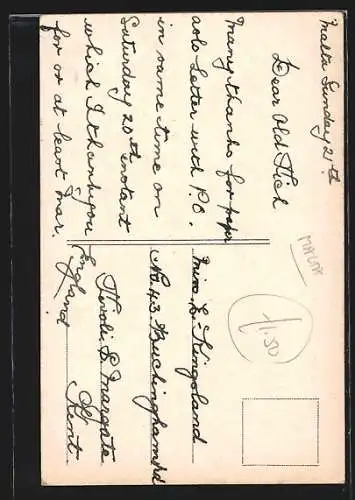 Malta Sunday 21st
Dear Old Flick
Many thanks for papr
also Letter with P.O.
in same time on
Saturday 20th instant
which I thank you
for or at least Mar.
Miss L. Kingsland
No. 43 Buckingham Rd
Tivoli Margate
Kent
England
MALTA
11.50